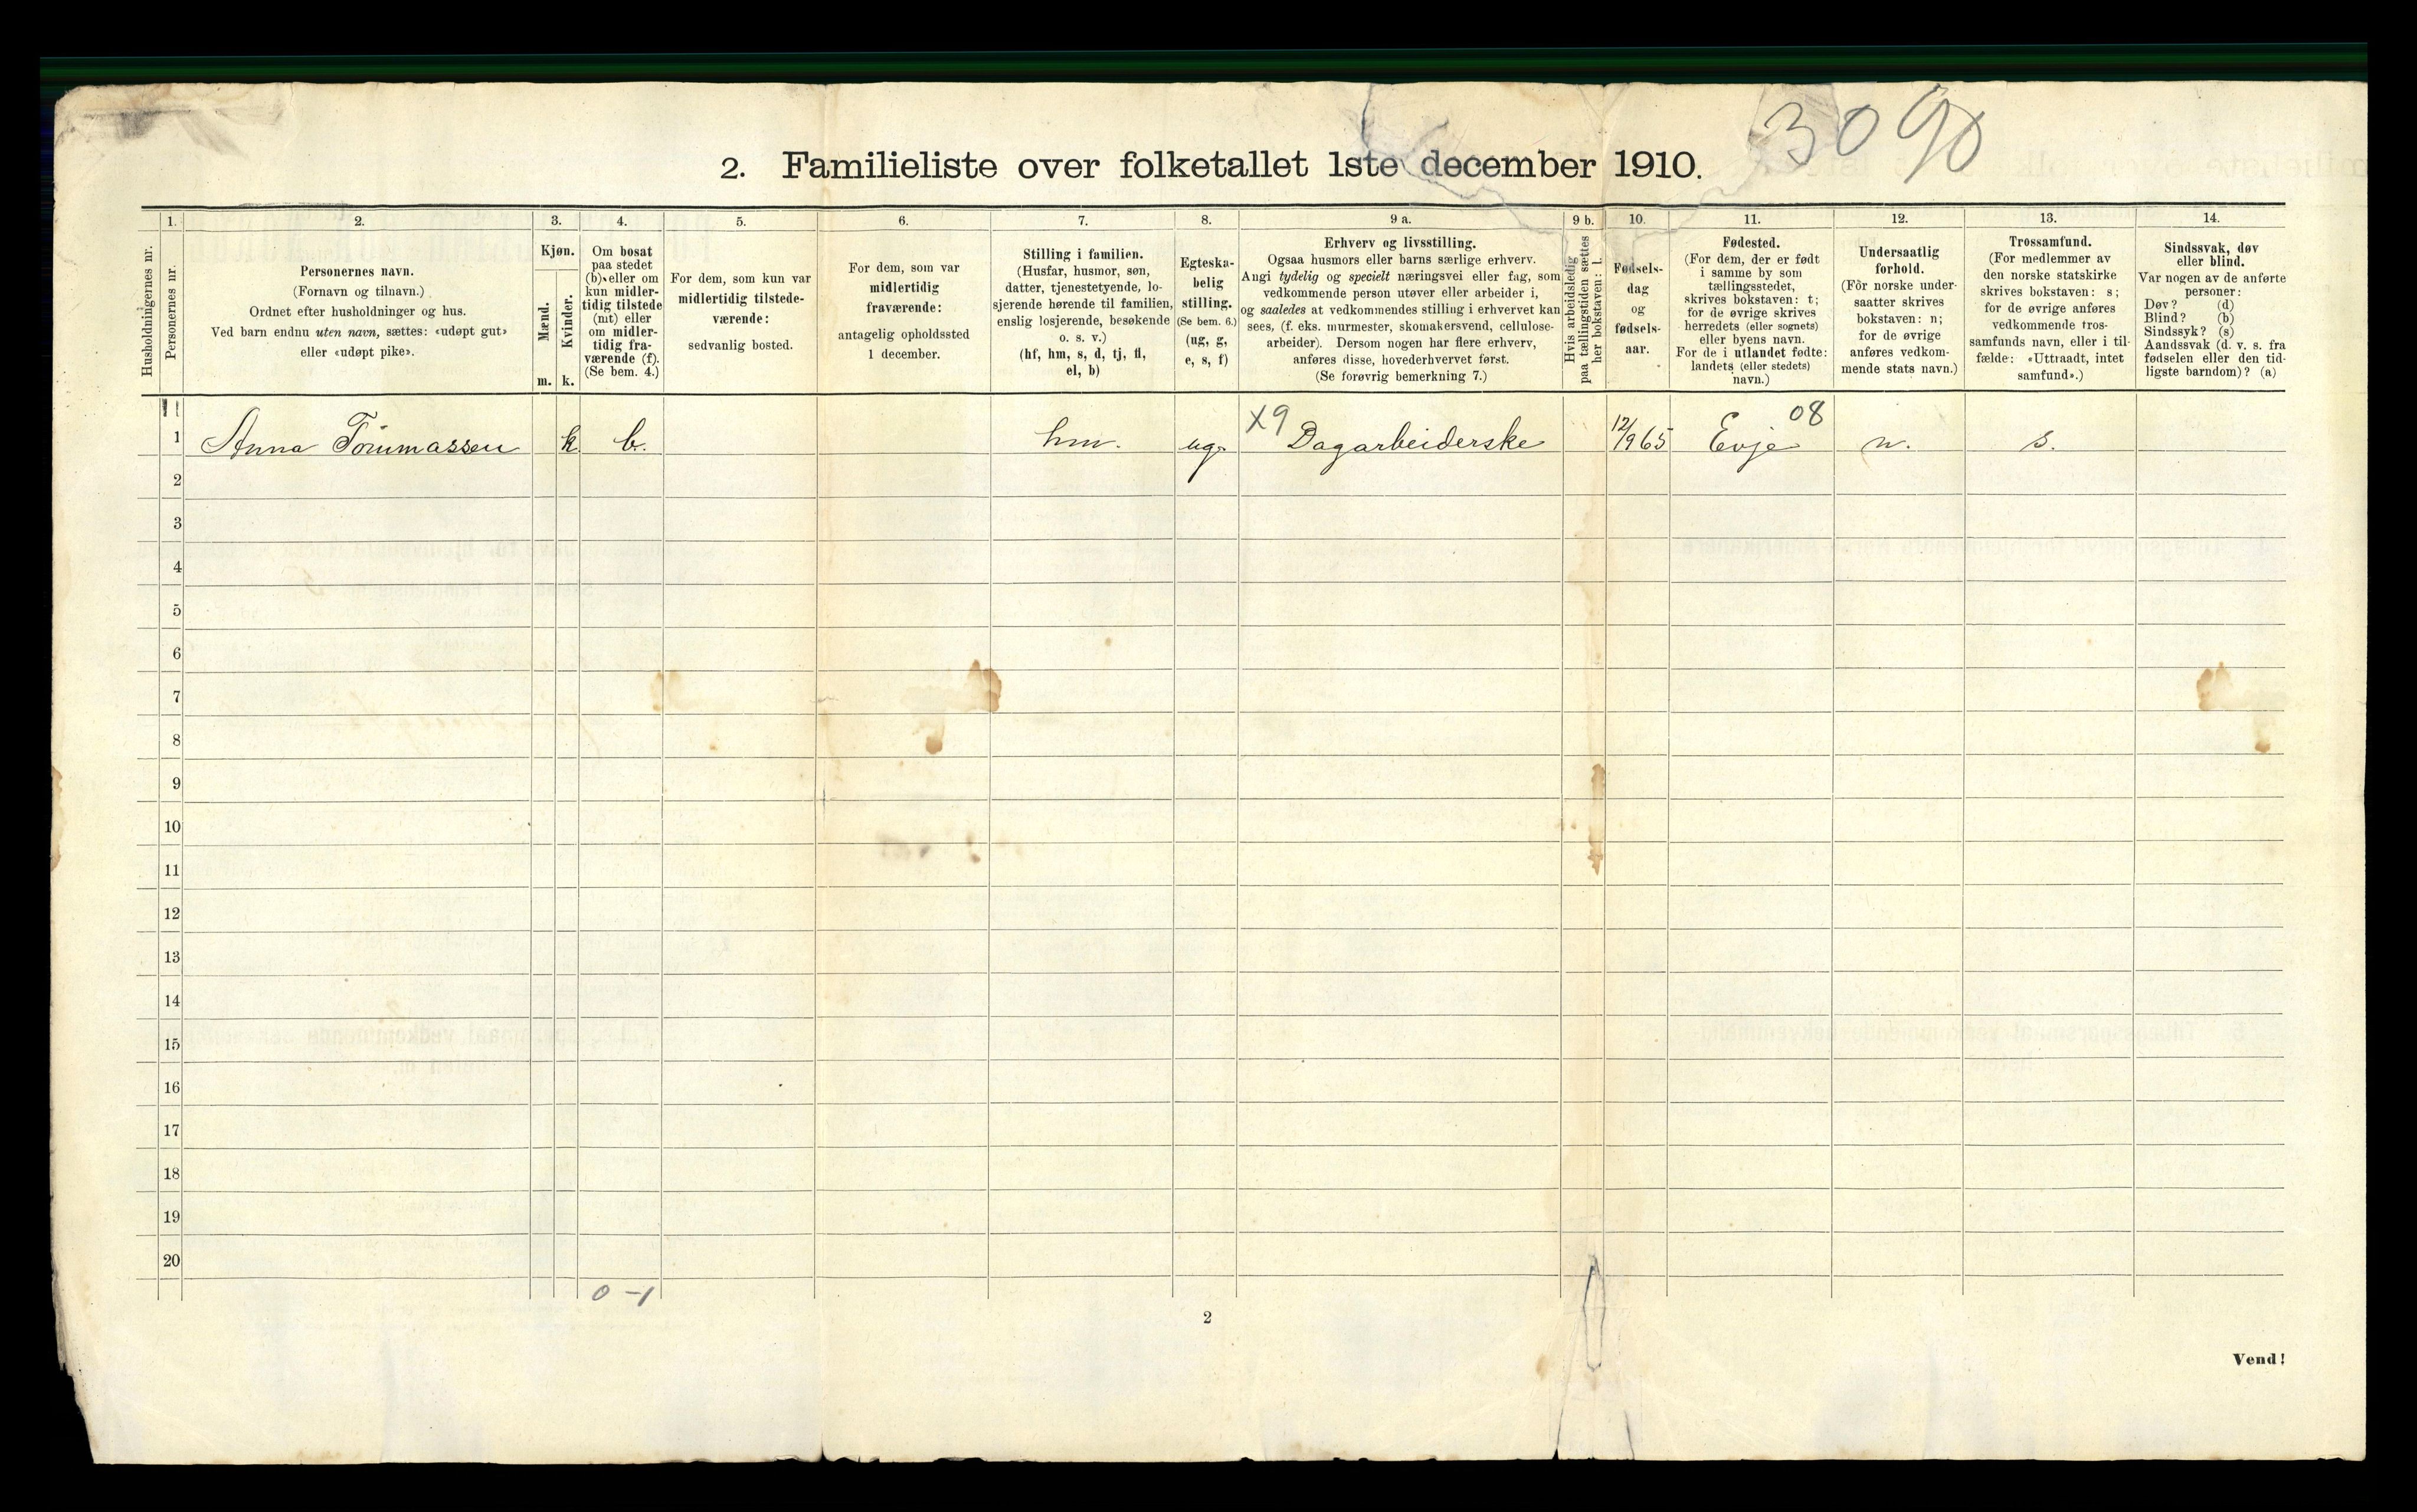 3090
2. Familieliste over folketallet 1ste december 1910.
1. 2. 3. 4. 5. 6. 7. 8. 9 a. 9 b. 10. 11. 12. 13. 14.
Husholdningernes nr.
Personernes nr.
Personernes navn.
(Fornavn og tilnavn.)
Ordnet efter husholdninger og hus.
Ved barn endnu uten navn, sættes: «udøpt gut»
eller «udøpt pike».
Kjøn.
Mænd.
Kvinder.
m. k.
Om bosat
paa stedet
(b) eller om
kun midler-
tidig tilstede
(mt) eller
om midler-
tidig fra-
værende (f).
(Se bem. 4.)
For dem, som kun var
midlertidig tilstede-
værende:
sedvanlig bosted.
For dem, som var
midlertidig
fraværende:
antagelig opholdssted
1 december.
Stilling i familien.
(Husfar, husmor, søn,
datter, tjenestetyende, lo-
sjerende hørende til familien,
enslig losjerende, besøkende
o. s. v.)
(hf, hm, s, d, tj, fl,
el, b)
Egteska-
belig
stilling.
(Se bem. 6.)
(ug, g,
e, s, f)
Erhverv og livsstilling.
Ogsaa husmors eller barns særlige erhverv.
Angi tydelig og specielt næringsvei eller fag, som
vedkommende person utøver eller arbeider i,
og saaledes at vedkommendes stilling i erhvervet kan
sees, (f. eks. murmester, skomakersvend, cellulose-
arbeider). Dersom nogen har flere erhverv,
anføres disse, hovederhvervet først.
(Se forøvrig bemerkning 7.)
Hvis arbeidsledig
paa tællingstiden sættes
her bokstaven: l.
Fødsels-
dag
og
fødsels-
aar.
Fødested.
(For dem, der er født
i samme by som
tællingsstedet,
skrives bokstaven: t;
for de øvrige skrives
herredets (eller sognets)
eller byens navn.
For de i utlandet fødte:
landets (eller stedets)
navn.)
Undersaatlig
forhold.
(For norske under-
saatter skrives
bokstaven: n;
for de øvrige
anføres vedkom-
mende stats navn.)
Trossamfund.
(For medlemmer av
den norske statskirke
skrives bokstaven: s;
for de øvrige anføres
vedkommende tros-
samfunds navn, eller i til-
fælde: «Uttraadt, intet
samfund».)
Sindssvak, døv
eller blind.
Var nogen av de anførte
personer:
Døv? (d)
Blind? (b)
Sindssyk? (s)
Aandssvak (d. v. s. fra
fødselen eller den tid-
ligste barndom)? (a)
X9 08
1 Anna Tommassen k b. hm. ug. Dagarbeiderske 12/9 65 Evje n. s.
2
3
4
5
6
7
8
9
10
11
12
13
14
15
16
17
18
19
20
0 - 1
2
Vend!